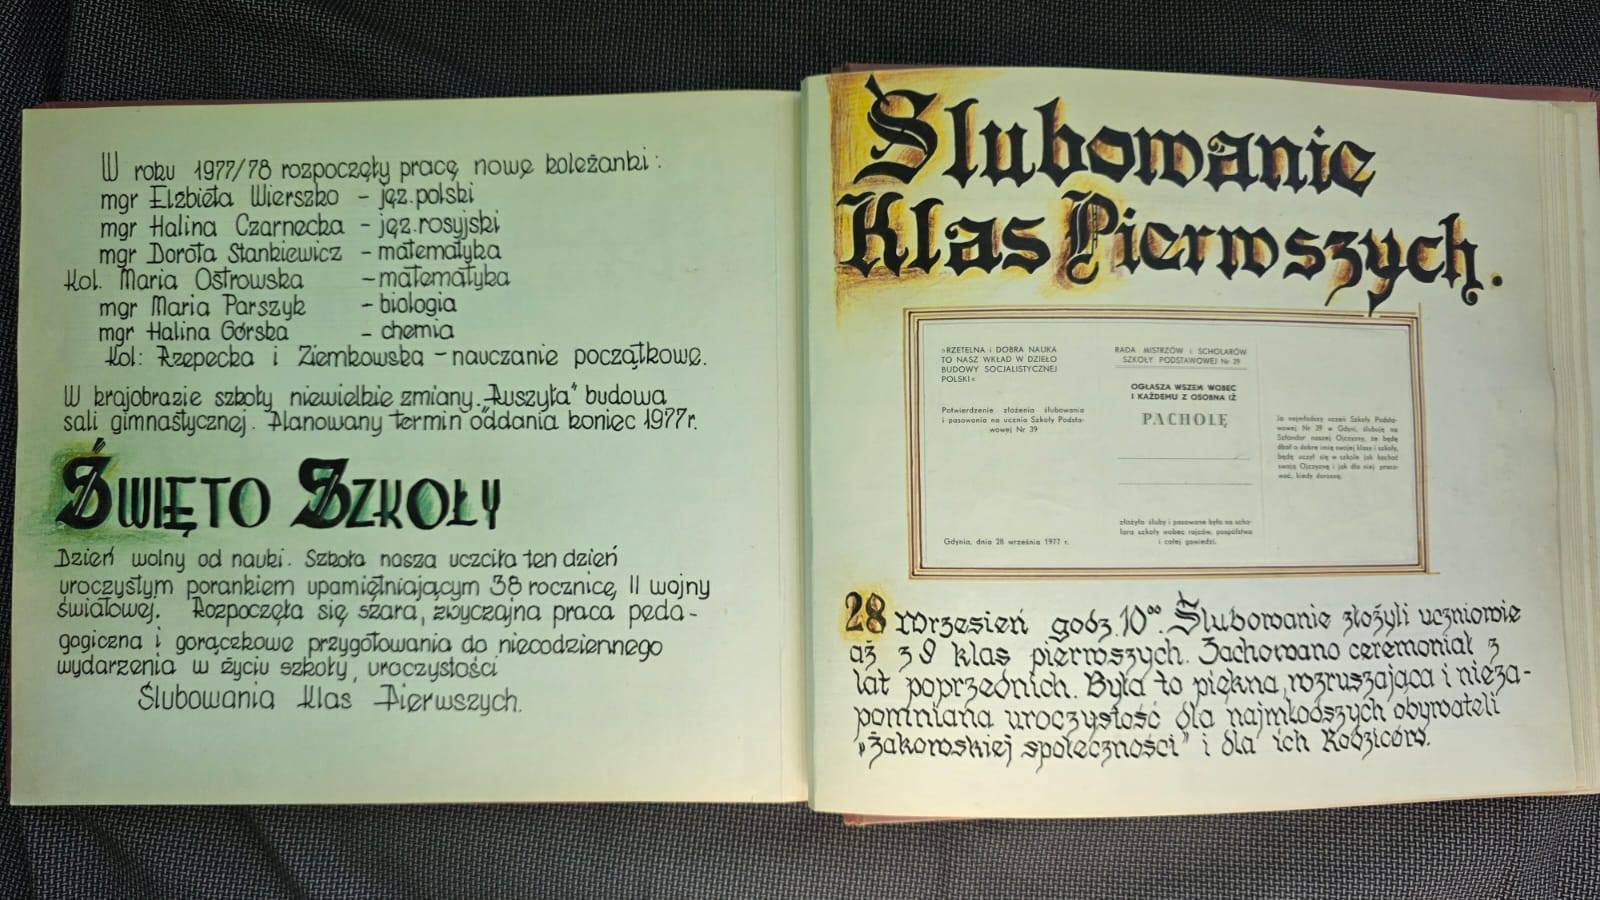 W roku 1977/78 rozpoczęły pracę nowe koleżanki:
mgr Elżbieta Wierszko - jęz. polski
mgr Halina Czarnecka - jęz. rosyjski
mgr Dorota Stankiewicz - matematyka
Kol. Maria Ostrowska - matematyka
mgr Maria Parszyk - biologia
mgr Halina Górska - chemia
Kol: Rzepecka i Ziemkowska - nauczanie początkowe.
W krajobrazie szkoły niewielkie zmiany. „Ruszyła" budowa
sali gimnastycznej. Planowany termin oddania koniec 1977r.
ŚWIĘTO SZKOŁY
Dzień wolny od nauki. Szkoła nasza uczciła ten dzień
uroczystym porankiem upamiętniającym 38 rocznicę II wojny
światowej. Rozpoczęła się szara, zwyczajna praca peda-
gogiczna i gorączkowe przygotowania do niecodziennego
wydarzenia w życiu szkoły, uroczystości
Ślubowania Klas Pierwszych.
Ślubowanie
Klas Pierwszych.
»RZETELNA i DOBRA NAUKA
TO NASZ WKŁAD W DZIEŁO
BUDOWY SOCJALISTYCZNEJ
POLSKI«
Potwierdzenie złożenia ślubowania
i pasowania na ucznia Szkoły Podsta-
wowej Nr 39
Gdynia, dnia 28 września 1977 r.
RADA MISTRZÓW i SCHOLARÓW
SZKOŁY PODSTAWOWEJ Nr 39
OGŁASZA WSZEM WOBEC
I KAŻDEMU Z OSOBNA IŻ
PACHOLĘ
złożyło śluby i pasowane było na scho-
lara szkoły wobec rajców, pospólstwa
i całej gawiedzi.
Ja najmłodszy uczeń Szkoły Podsta-
wowej Nr 39 w Gdyni, ślubuję na
Sztandar naszej Ojczyzny, że będę
dbał o dobre imię swojej klasy i szkoły,
będę uczył się w szkole jak kochać
swoją Ojczyznę i jak dla niej praco-
wać, kiedy dorosnę.
28 wrzesień godz. 10⁰⁰. Ślubowanie złożyli uczniowie
aż z 9 klas pierwszych. Zachowano ceremoniał z
lat poprzednich. Była to piękna, wzruszająca i nieza-
pomniana uroczystość dla najmłodszych obywateli
„Żakowskiej społeczności" i dla ich Rodziców.